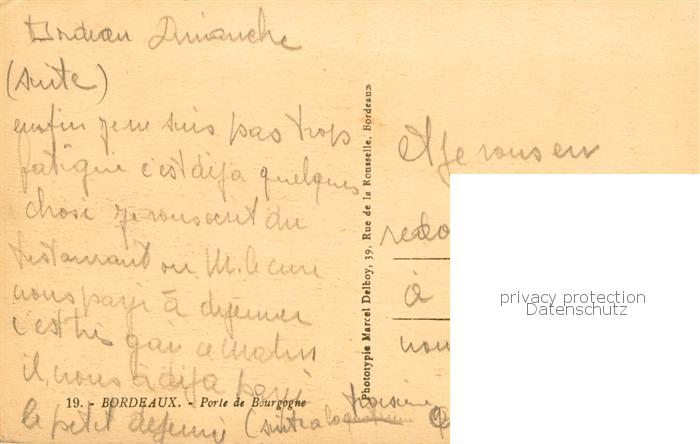 Bordeau Dimanche
(suite)
enfin je ne suis pas trop
fatigué c'est déja quelques
chose je vous ecrit du
restaurant ou M. le cure
nous paye à dejeuner
c'est tres gai ce matin
il nous a deja payé
le petit dejeuner
19. - BORDEAUX. - Porte de Bourgogne
Phototypie Marcel Delboy, 39, Rue de la Rousselle, Bordeaux
et je vous en
à
privacy protection
Datenschutz